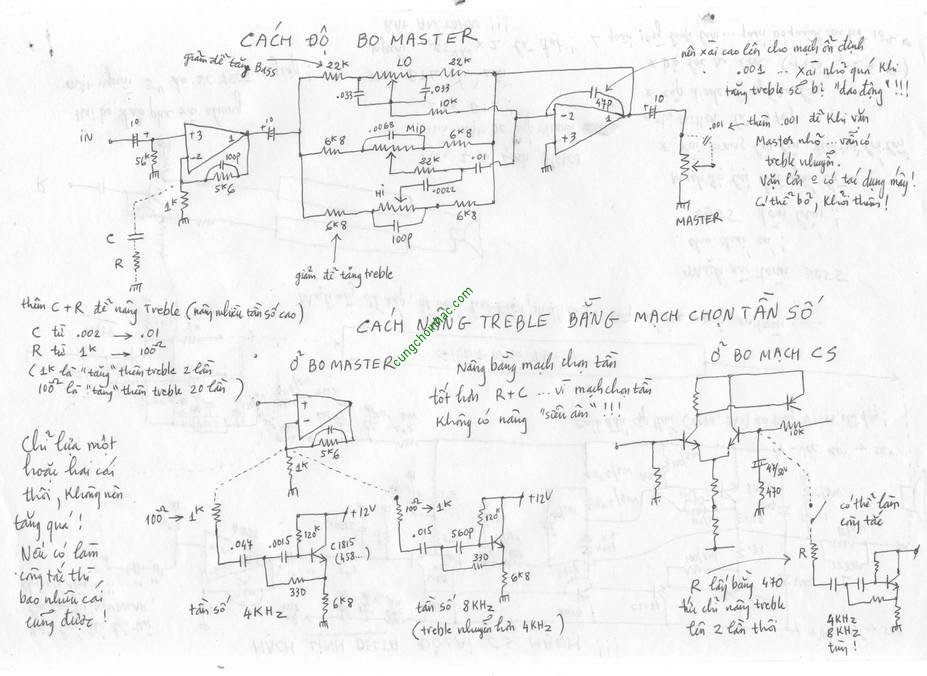 CÁCH ĐỘ BO MASTER
giảm để tăng Bass
22K
LO
22K
.033
.033
10K
nên xài cao lên cho mạch ổn định
.001 ... xài nhỏ quá khi
tăng treble sẽ bị "dao động" !!!
47P
10
iN
10
+3
1
-2
100p
5K6
56K
1K
10
.0068
MiD
6K8
6K8
22K
.01
.0022
Hi
6K8
6K8
100p
-2
+3
1
.001 ← thêm .001 để khi vặn
Master nhỏ ... vẫn có
treble nhuyễn.
Vặn lớn
có tác dụng mấy!
Có thể bỏ, khỏi thêm!
MASTER
C
R
giảm để tăng treble
thêm C + R để nâng Treble (nâng nhiều tần số cao)
C từ .002 → .01
R từ 1K → 100Ω
( 1K là "tăng" thêm treble 2 lần
100Ω là "tăng" thêm treble 20 lần )
cungchoinhac.com
CÁCH NÂNG TREBLE BẰNG MẠCH CHỌN TẦN SỐ
Ở BO MASTER
Nâng bằng mạch chọn tần
tốt hơn R+C ... vì mạch chọn tần
không có nâng "siêu âm" !!!
Ở BO MẠCH CS
+
-
5K6
1K
10K
47/50V
470
Chỉ lựa một
hoặc hai cái
thôi, không nên
tăng quá!
Nếu có làm
công tắc thì
bao nhiêu cái
cũng được!
100Ω → 1K
.047
.0015
120K
+12V
C1815
(458...)
330
6K8
tần số 4KHz
100Ω → 1K
.015
560p
120K
+12V
330
6K8
tần số 8KHz
(treble nhuyễn hơn 4KHz)
có thể làm
công tắc
R
R lấy bằng 470
thì chỉ nâng treble
lên 2 lần thôi
4KHz
8KHz
tùy!